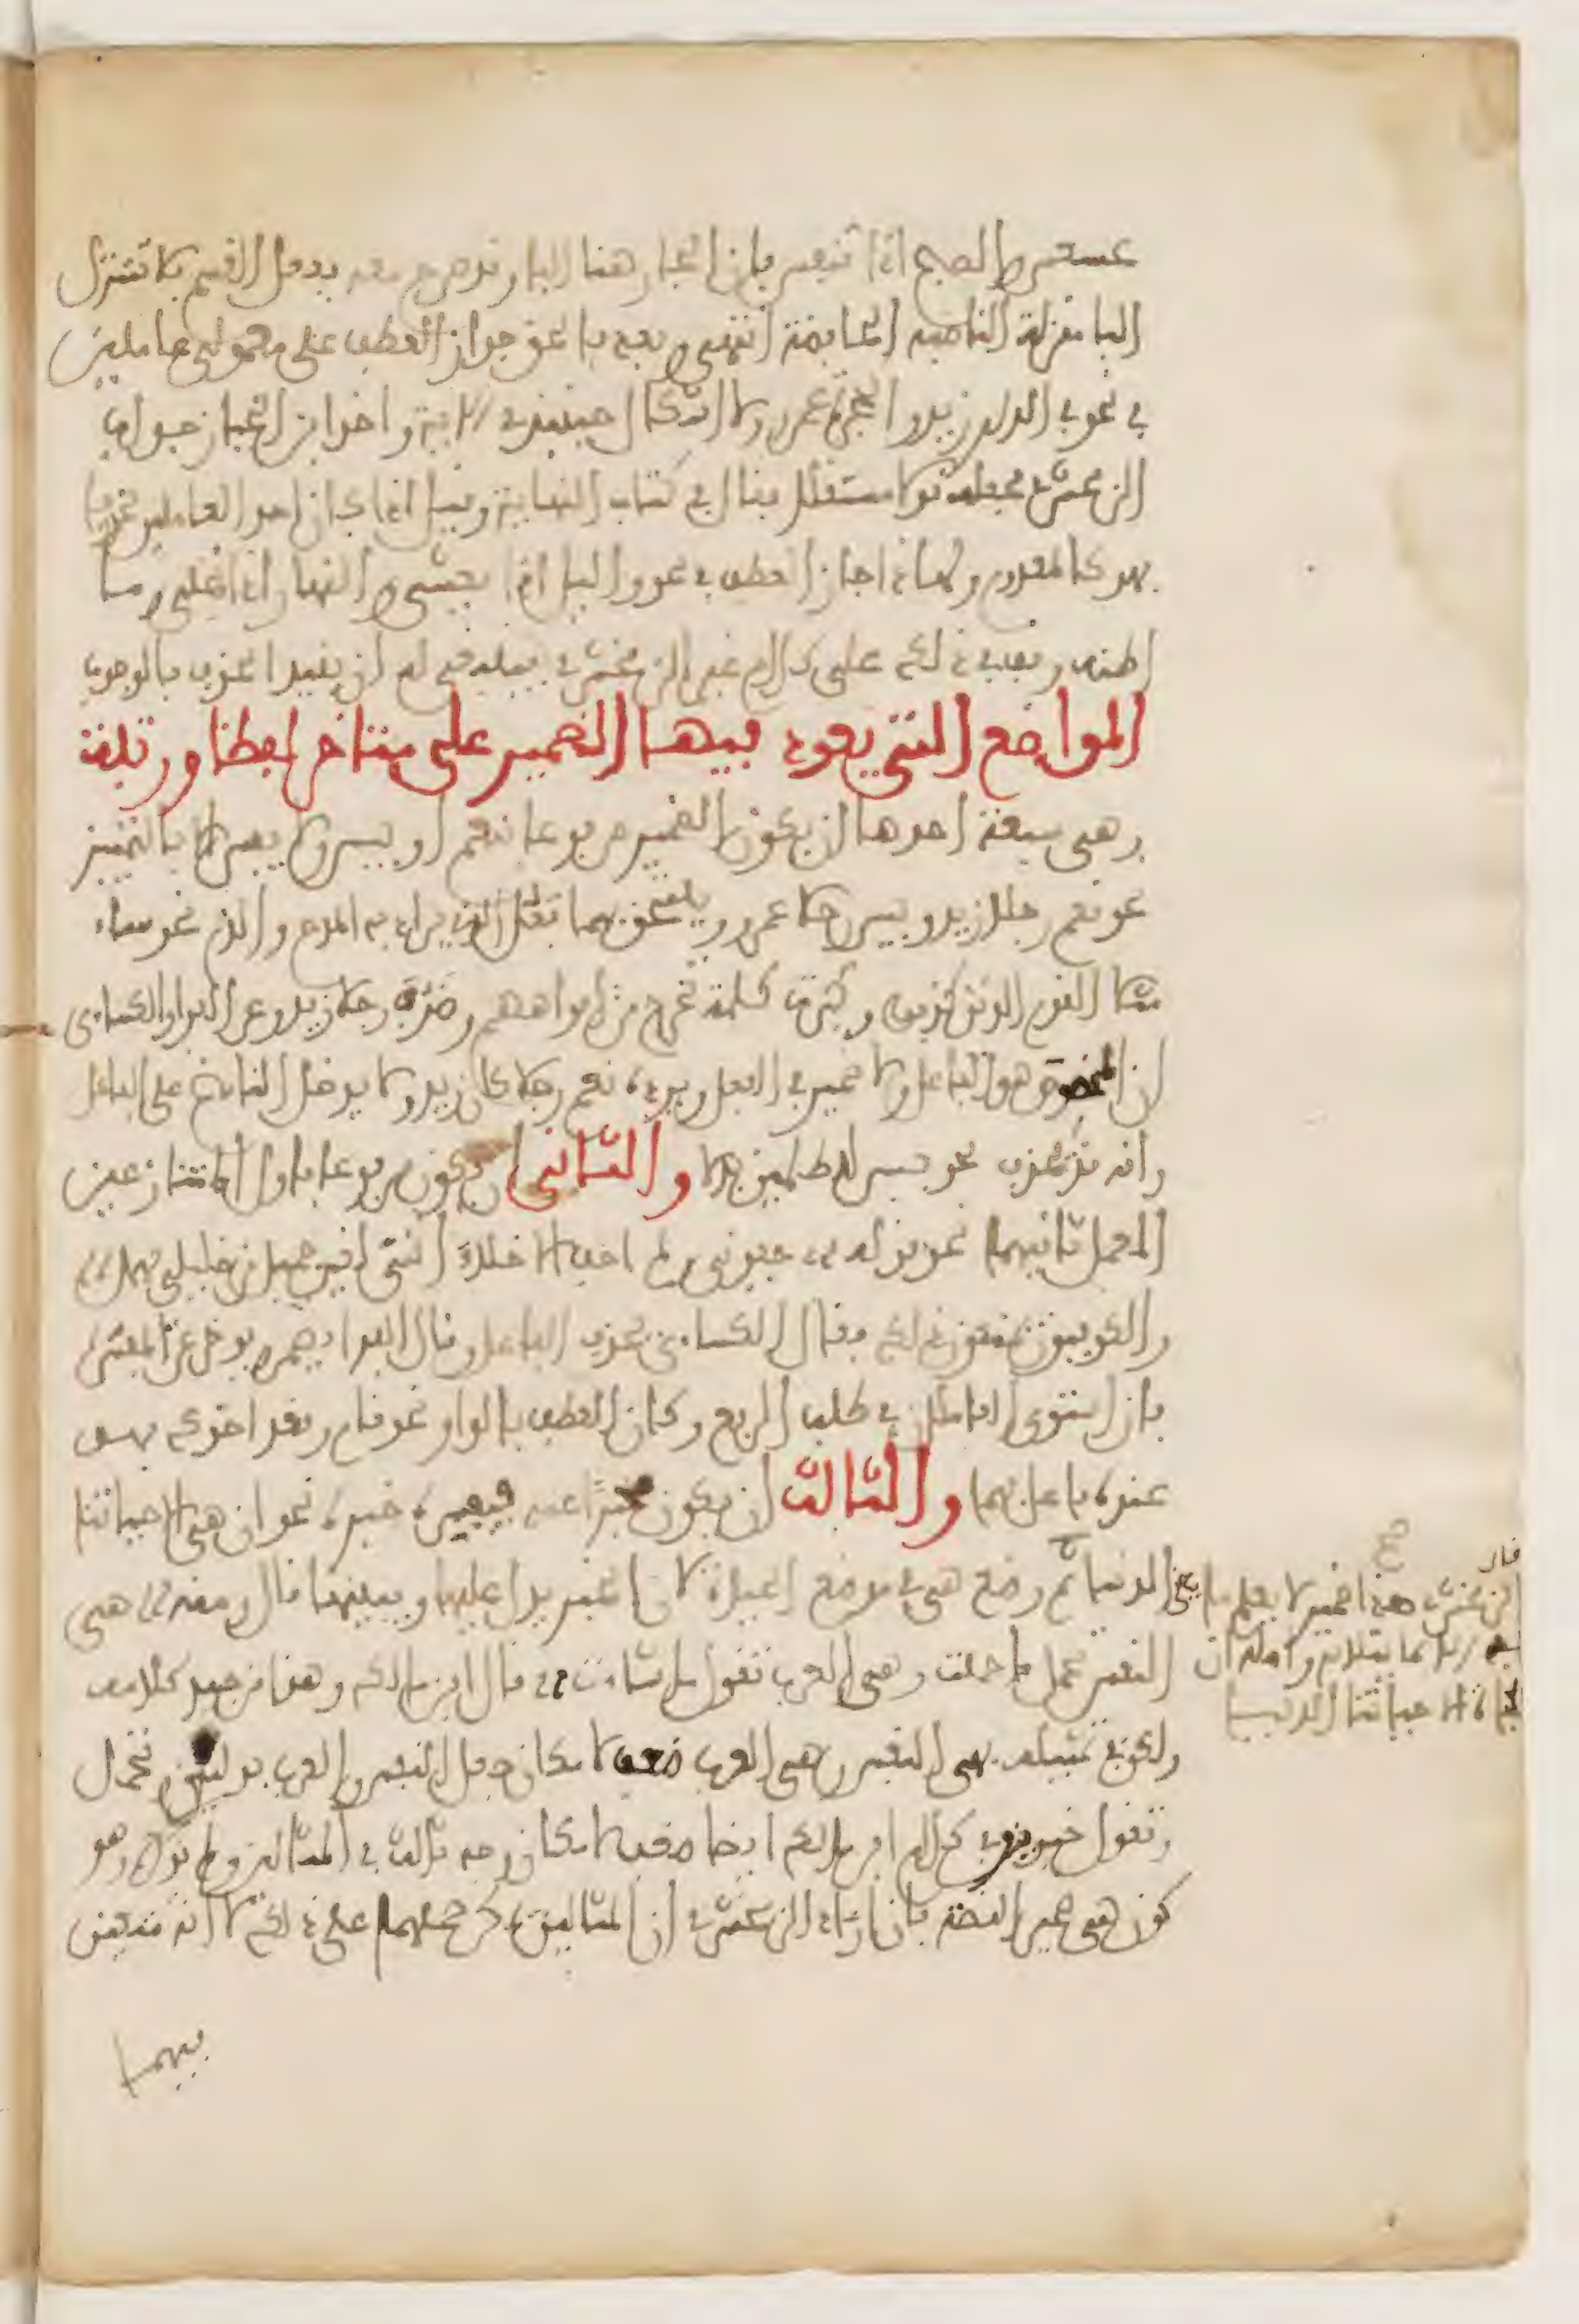 عسعس والصبح اذا تنفس فان الجار هنا البا وقد صرح معه بفعل القسم فلا تتنزل
البا منزلة الناصبة الخافضة انتهى وبعد فالحق جواز العطف على معمولي عاملين
في نحو في الدار زيد والحجرة عمرو ولا اشكال حينئذ في الاية واخذ ابن الخباز جواب
الزمخشري فجعله قولا مستقلا فقال في كتاب النهاية وقيل اذا كان احد العاملين محذوفا
فهو كالمعدوم ولهذا جاز العطف في نحو والليل اذا يغشى والنهار اذا تجلى وما
اظنه وقف في ذلك على كلام غير الزمخشري فينبغي له ان يقيد الحذف بالوجوب
المواضع التي يعود فيها الضمير على متاخر لفظا ورتبة
وهي سبعة احدها ان يكون الضمير مرفوعا بنعم او بيس ولا يفسر الا بالتمييز
نحو نعم رجلا زيد وبيس رجلا عمرو ويلتحق بهما فعل الذي يراد به المدح والذم نحو ساء
مثلا القوم الذين كذبوا وكبرت كلمة تخرج من افواههم وظرف رجلا زيد وعن الفراء والكساءي
ان المخصوص هو الفاعل ولا ضمير في الفعل ويرده نعم رجلا كان زيد ولا يدخل الناسخ على الفاعل
وانه قد يحذف نحو بيس للظالمين بدلا والثاني ان يكون مرفوعا باول المتنازعين
المعمل ثانيهما نحو قوله جفوني ولم اجف الاخلاء انني لغير جميل من خليلي مهمل
والكوفيون يمنعون ذلك فقال الكساءي يحذف الفاعل وقال الفراء يضمر ويوخر عن المفسر
فان استوى العاملان في طلب الرفع وكان العطف بالواو نحو قام وقعد اخوك فهو
عنده فاعل بهما والثالث ان يكون مخبرا عنه فيفسره خبره نحو ان هي الا حياتنا
الدنيا ثم وضع هي في موضع الحياة لان الخبر يدل عليها ويبينها قال ومنه هي
النفس تحمل ما حملت وهي العرب تقول ما شاءت قال ابن مالك وهذا من جيد كلامه
ولكن في تمثيله بهي النفس وهي العرب ضعف لامكان جعل النفس والعرب بدلين وتحمل
وتقول خبرين وفي كلام ابن مالك ايضا ضعف لامكان وجه ثالث في المثالين ولم يذكره وهو
كون هي ضمير القصة فان اراد الزمخشري ان المثالين يمكن حملهما على ذلك لا انه متعين
فيهما
قال
الزمخشري هذا ضمير لا يعلم ما يعنى
به الا بما يتلوه واصله ان
الحياة الا حياتنا الدنيا